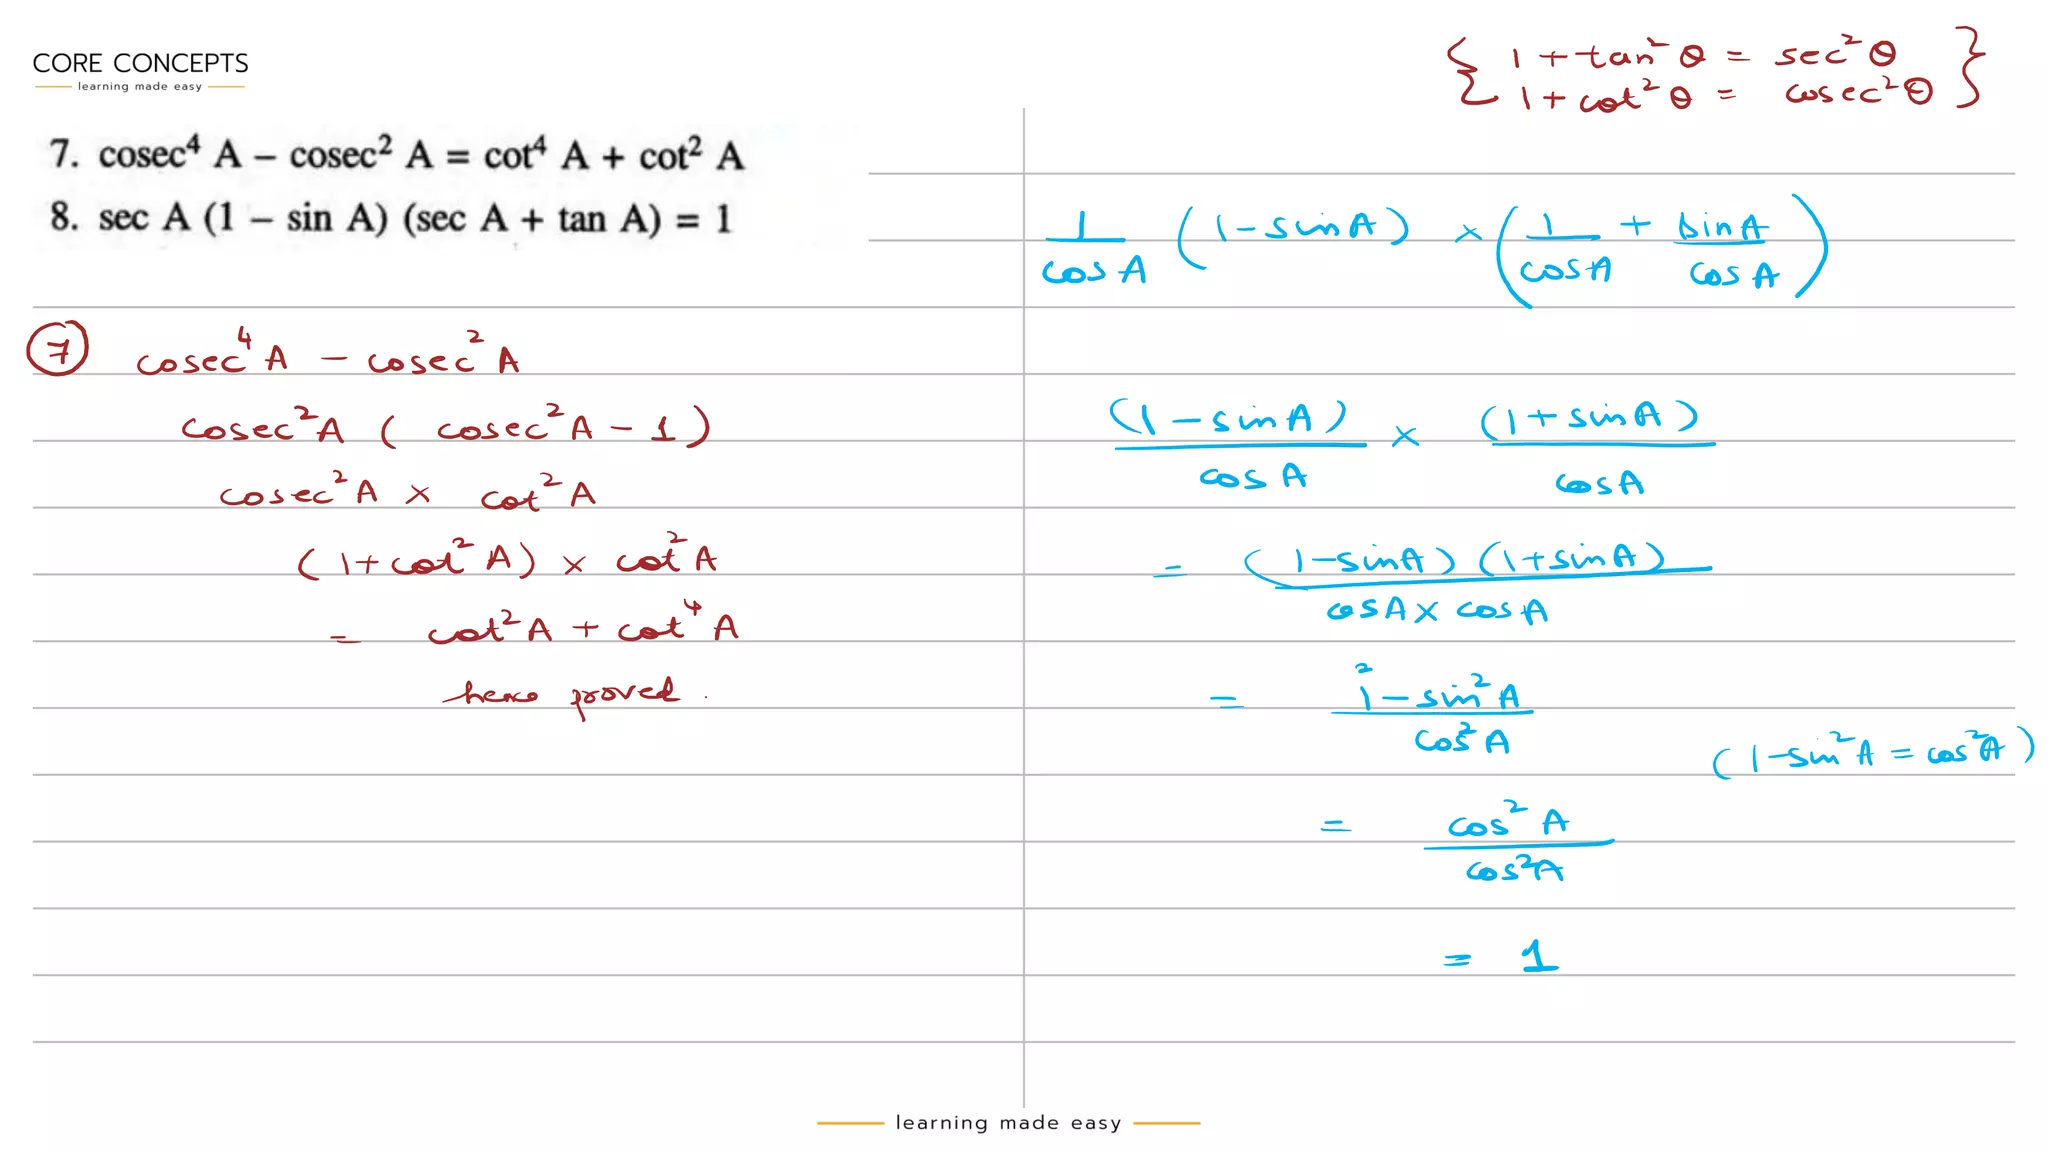 CORE CONCEPTS
learning made easy
{ 1 + tan² θ = sec² θ
1 + cot² θ = cosec² θ }
7. cosec⁴ A – cosec² A = cot⁴ A + cot² A
8. sec A (1 – sin A) (sec A + tan A) = 1
⑦ cosec⁴ A – cosec² A
cosec² A ( cosec² A – 1 )
cosec² A × cot² A
( 1 + cot² A ) × cot² A
= cot² A + cot⁴ A
hence proved .
1/cos A ( 1 – sin A ) × ( 1/cos A + sin A/cos A )
( 1 – sin A )/cos A × ( 1 + sin A )/cos A
= ( 1 – sin A ) ( 1 + sin A )/cos A × cos A
= 1² – sin² A/cos² A
( 1 – sin² A = cos² A )
= cos² A/cos² A
= 1
learning made easy